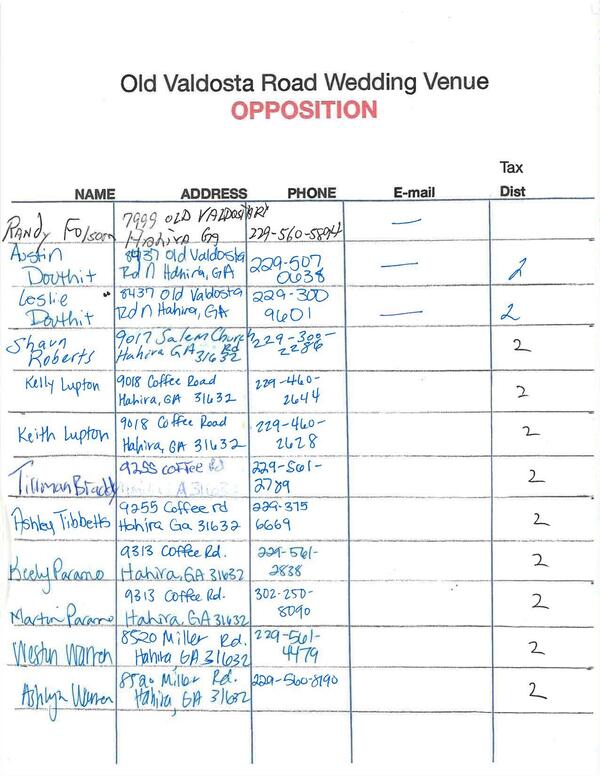 Old Valdosta Road Wedding Venue
OPPOSITION
Tax
NAME ADDRESS PHONE E-mail Dist
Randy Folsom 7999 Old Valdosta Rd
Hahira Ga 229-560-5844 —
Austin 8437 Old Valdosta 229-507
Douthit Rd N Hahira, GA 0638 — 2
Leslie 8437 Old Valdosta 229-300
Douthit Rd N Hahira, GA 9601 — 2
Shaun 9017 Salem Church Rd 229-300-
Roberts Hahira GA 31632 2286 2
Kelly Lupton 9018 Coffee Road 229-460-
Hahira, GA 31632 2644 2
Keith Lupton 9018 Coffee Road 229-460-
Hahira, GA 31632 2628 2
Tillman Braddy 9255 Coffee Rd 229-561-
A 31632 2789 2
Ashley Tibbetts 9255 Coffee rd 229-375
Hahira Ga 31632 6669 2
Keely Paramo 9313 Coffee Rd. 229-561-
Hahira, GA 31632 2838 2
Martin Paramo 9313 Coffee Rd. 302-250-
Hahira, GA 31632 8090 2
Westyn Warren 8520 Miller Rd. 229-561-
Hahira GA 31632 4479 2
Ashlyn Warren 8520 Miller Rd. 229-560-8190
Hahira, GA 31632 2